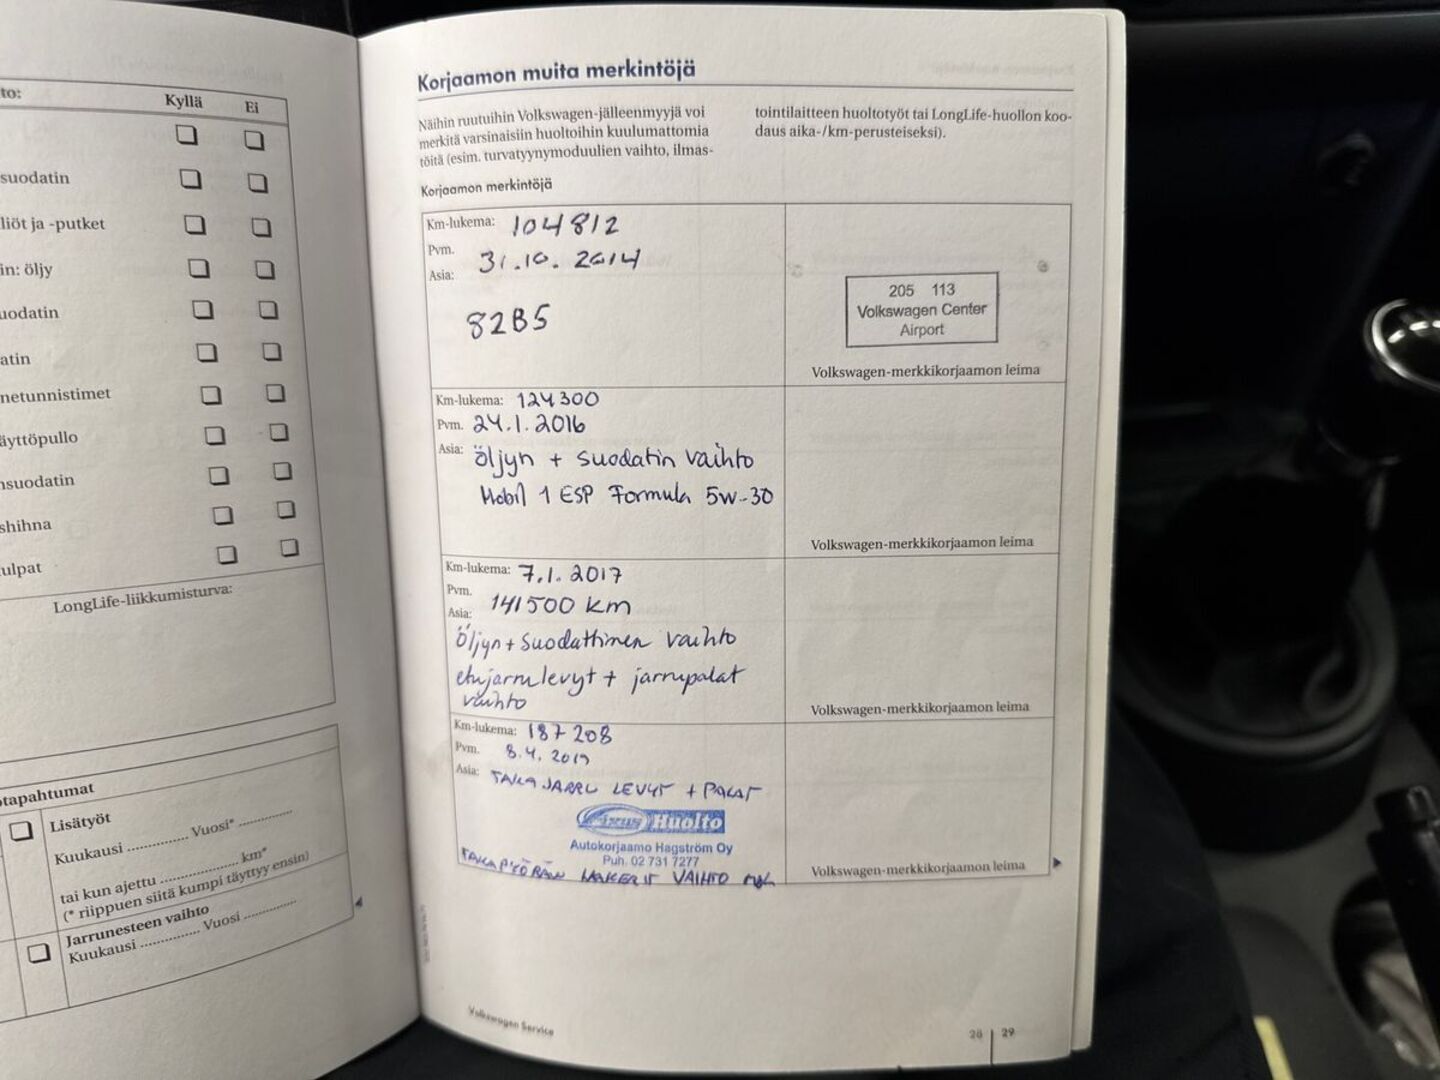 to:
Kyllä Ei
suodatin
liöt ja -putket
in: öljy
uodatin
atin
netunnistimet
äyttöpullo
nsuodatin
shihna
ulpat
LongLife-liikkumisturva:
tapahtumat
Lisätyöt
Kuukausi ............... Vuosi* ...............
tai kun ajettu .................... km*
(* riippuen siitä kumpi täyttyy ensin)
Jarrunesteen vaihto
Kuukausi ............... Vuosi ...............
Korjaamon muita merkintöjä
Näihin ruutuihin Volkswagen-jälleenmyyjä voi
merkitä varsinaisiin huoltoihin kuulumattomia
töitä (esim. turvatyynymoduulien vaihto, ilmas-
tointilaitteen huoltotyöt tai LongLife-huollon koo-
daus aika-/km-perusteiseksi).
Korjaamon merkintöjä
Km-lukema: 104812
Pvm. 31.10.2014
Asia:
82B5
205 113
Volkswagen Center
Airport
Volkswagen-merkkikorjaamon leima
Km-lukema: 124300
Pvm. 24.1.2016
Asia: öljyn + suodatin vaihto
Mobil 1 ESP Formula 5w-30
Volkswagen-merkkikorjaamon leima
Km-lukema: 7.1.2017
Pvm.
Asia: 141500 km
öljyn + suodattimen vaihto
etujarrulevyt + jarrupalat
vaihto
Volkswagen-merkkikorjaamon leima
Km-lukema: 187208
Pvm. 8.4.2019
Asia: TAKAJARRU LEVYT + PALAT
Fixus Huolto
Autokorjaamo Hagström Oy
Puh. 02 731 7277
TAKAPYÖRÄN LAAKERIT VAIHTO
Volkswagen-merkkikorjaamon leima
Volkswagen Service
28 29